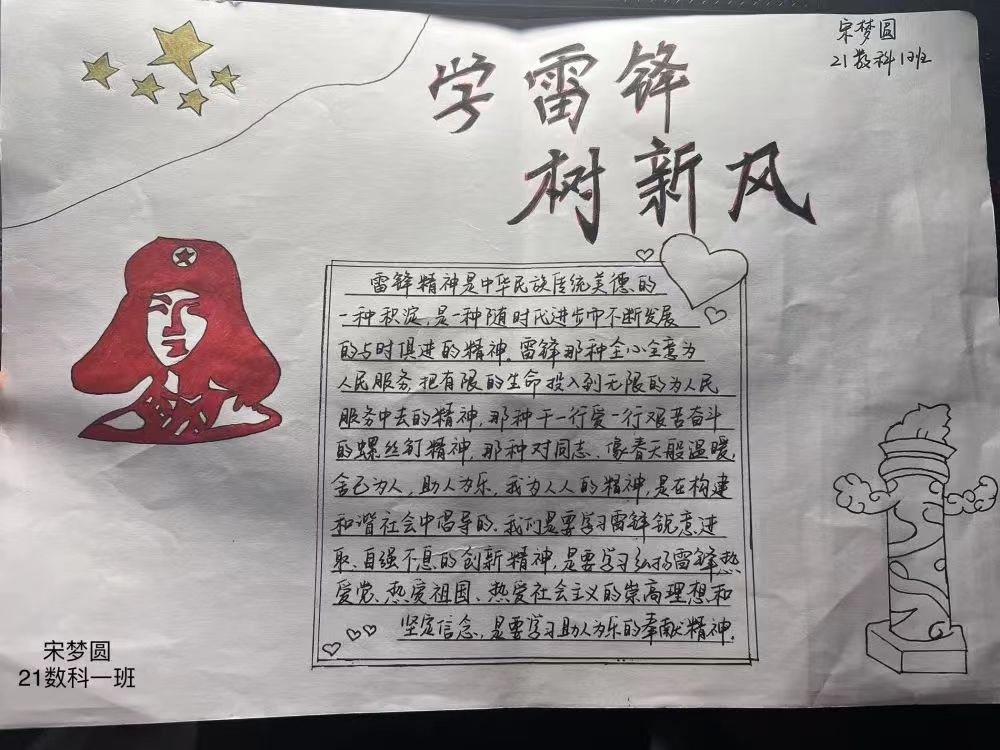 宋梦圆
21数科1班
学雷锋
树新风
雷锋精神是中华民族传统美德的
一种积淀,是一种随时代进步而不断发展
的与时俱进的精神。雷锋那种全心全意为
人民服务,把有限的生命投入到无限的为人民
服务中去的精神,那种干一行爱一行艰苦奋斗
的螺丝钉精神,那种对同志、像春天般温暖,
舍己为人,助人为乐,我为人人的精神,是在构建
和谐社会中倡导的。我们是要学习雷锋锐意进
取、自强不息的创新精神,是要学习弘扬雷锋热
爱党、热爱祖国、热爱社会主义的崇高理想和
坚定信念,是要学习助人为乐的奉献精神。
宋梦圆
21数科一班